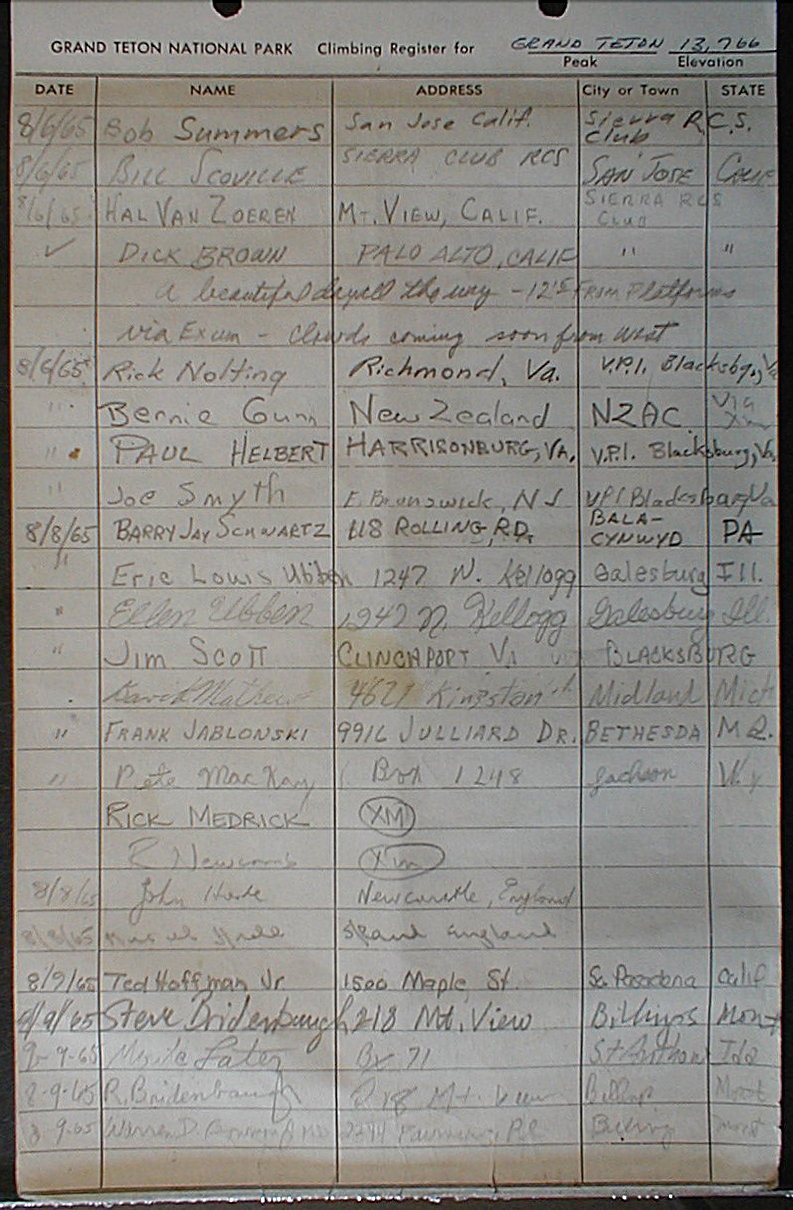 GRAND TETON NATIONAL PARK Climbing Register for GRAND TETON 13,766
Peak Elevation
DATE NAME ADDRESS City or Town STATE
8/6/65 Bob Summers San Jose Calif. Sierra R.C.S. Club
8/6/65 BILL SCOVILLE SIERRA CLUB RCS SAN JOSE CALIF
8/6/65 HAL VAN ZOEREN MT. VIEW, CALIF. SIERRA RCS CLUB
✓ DICK BROWN PALO ALTO, CALIF " "
a beautiful day all the way - 12 FROM Platforms
via Exum - Clouds coming soon from West
8/6/65 Rick Nolting Richmond, Va. V.P.I. Blacksbg., Va
" Bernie Gunn New Zealand NZAC Via
" PAUL HELBERT HARRISONBURG, VA. V.P.I. Blacksburg, Va.
" Joe Smyth E. Brunswick, NJ VPI Blacksburg Va
8/8/65 BARRY JAY SCHWARTZ 118 ROLLING RD. BALA-CYNWYD PA
" Eric Louis Ubben 1247 N. Kellogg Galesburg Ill.
" Ellen Ubben 1247 N. Kellogg Galesburg Ill.
" JIM SCOTT CLINCHPORT VA BLACKSBURG
David Mathews 4621 Kingston Midland Mich
" FRANK JABLONSKI 9916 JULLIARD DR. BETHESDA MD.
" Pete MacKay Box 1248 Jackson Wy
RICK MEDRICK XM
R Newcomb Xm
8/8/65 John Newcastle, England
8/8/65 England
8/9/65 Ted Hoffman Jr. 1500 Maple St. So Pasadena Calif
8/9/65 Steve Bridenbaugh 218 Mt. View Billings Mont
9-65 Bx 71 St Anthony Ida
8-9-65 R. Bridenbaugh 218 Mt. View Billings Mont
8 9-65 Warren D. Billings Mont